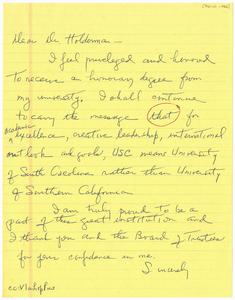 Dear Dr. Holderman —
I feel privileged and honored
to receive a honorary degree from
my university. I shall continue
to carry the message that for
academic excellence, creative leadership, international
outlook and goals, USC means University
of South Carolina rather than University
of Southern California
I am truly proud to be a
part of this great institution and
I thank you and the Board of Trustees
for your confidence in me.
Sincerely